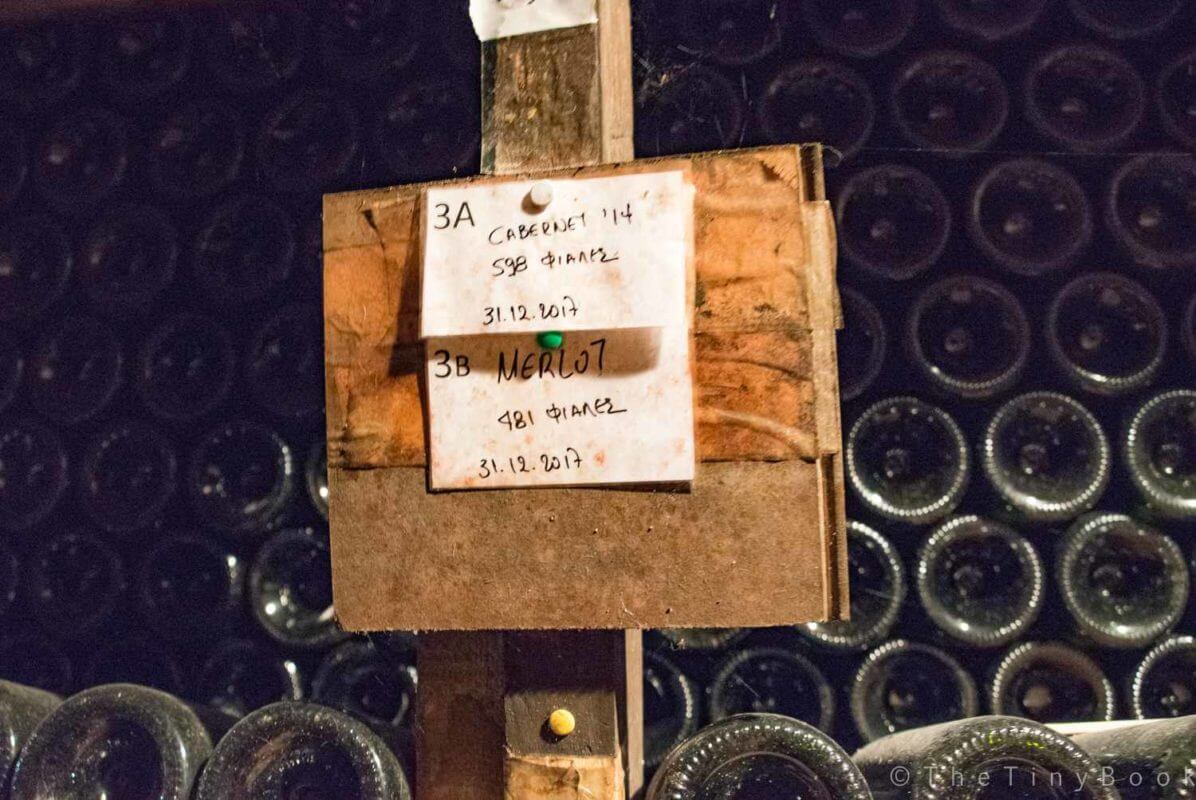 3A
CABERNET '14
598 ΦΙΑΛΕΣ
31.12.2017
3B MERLOT
481 ΦΙΑΛΕΣ
31.12.2017
©TheTinyBook